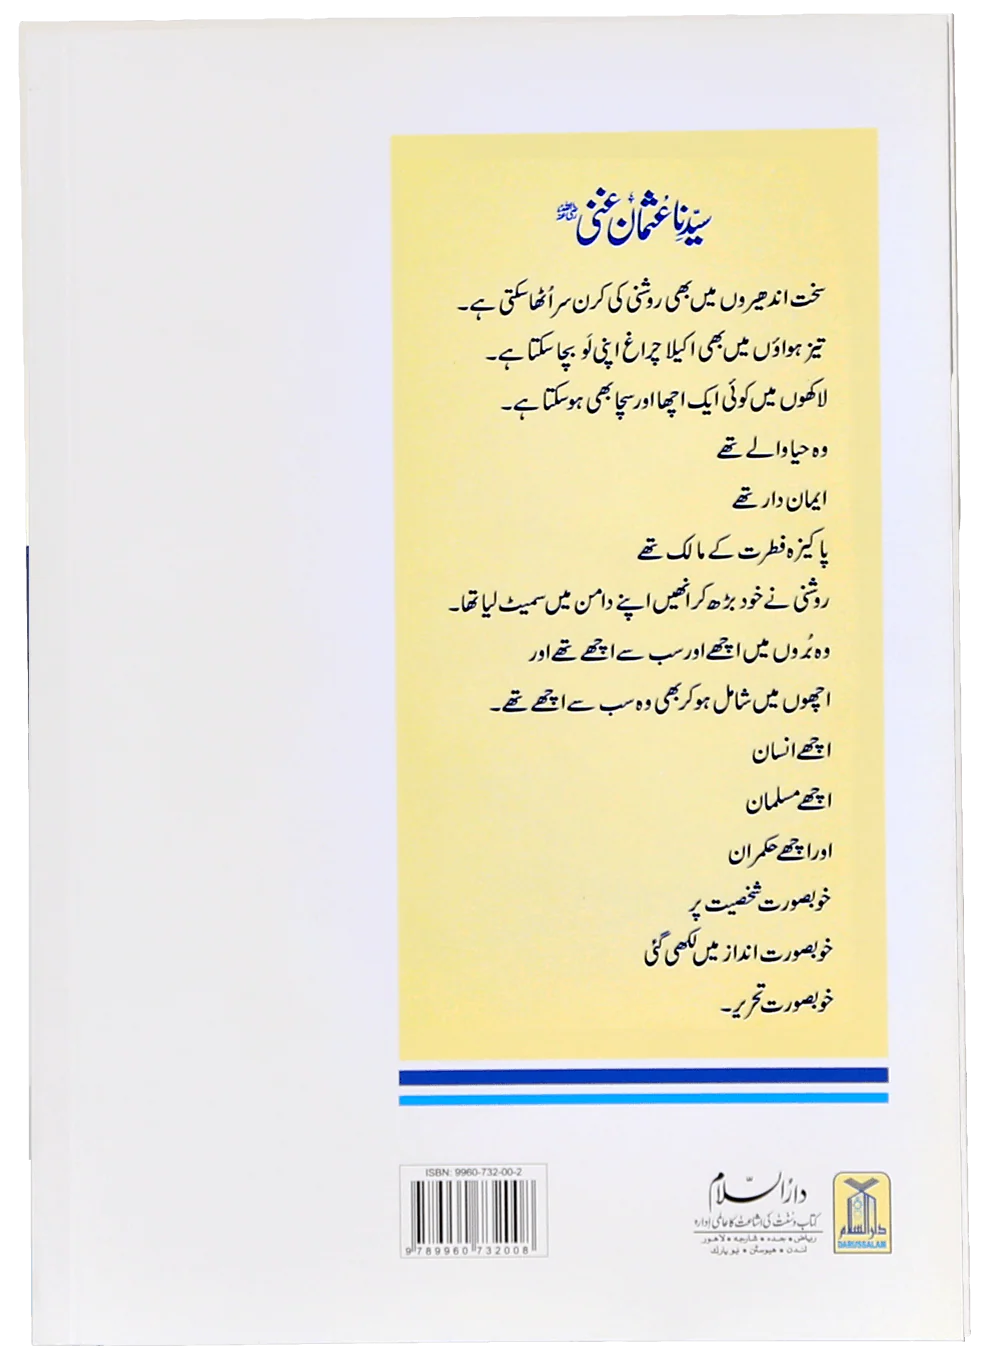 سیّدنا عُثمان غنی ؓ
سخت اندھیروں میں بھی روشنی کی کرن سر اُٹھا سکتی ہے۔
تیز ہواؤں میں بھی اکیلا چراغ اپنی لَو بچا سکتا ہے۔
لاکھوں میں کوئی ایک اچھا اور سچا بھی ہو سکتا ہے۔
وہ حیا والے تھے
ایمان دار تھے
پاکیزہ فطرت کے مالک تھے
روشنی نے خود بڑھ کر انھیں اپنے دامن میں سمیٹ لیا تھا۔
وہ بُروں میں اچھے اور سب سے اچھے تھے اور
اچھوں میں شامل ہو کر بھی وہ سب سے اچھے تھے۔
اچھے انسان
اچھے مسلمان
اور اچھے حکمران
خوبصورت شخصیت پر
خوبصورت انداز میں لکھی گئی
خوبصورت تحریر۔
ISBN: 9960-732-00-2
9 789960 732008
دارُالسّلام
کتاب و سنّت کی اشاعت کا عالمی ادارہ
ریاض • جدہ • شارجہ • لاہور
لندن • ہیوسٹن • نیویارک
دارالسلام
DARUSSALAM